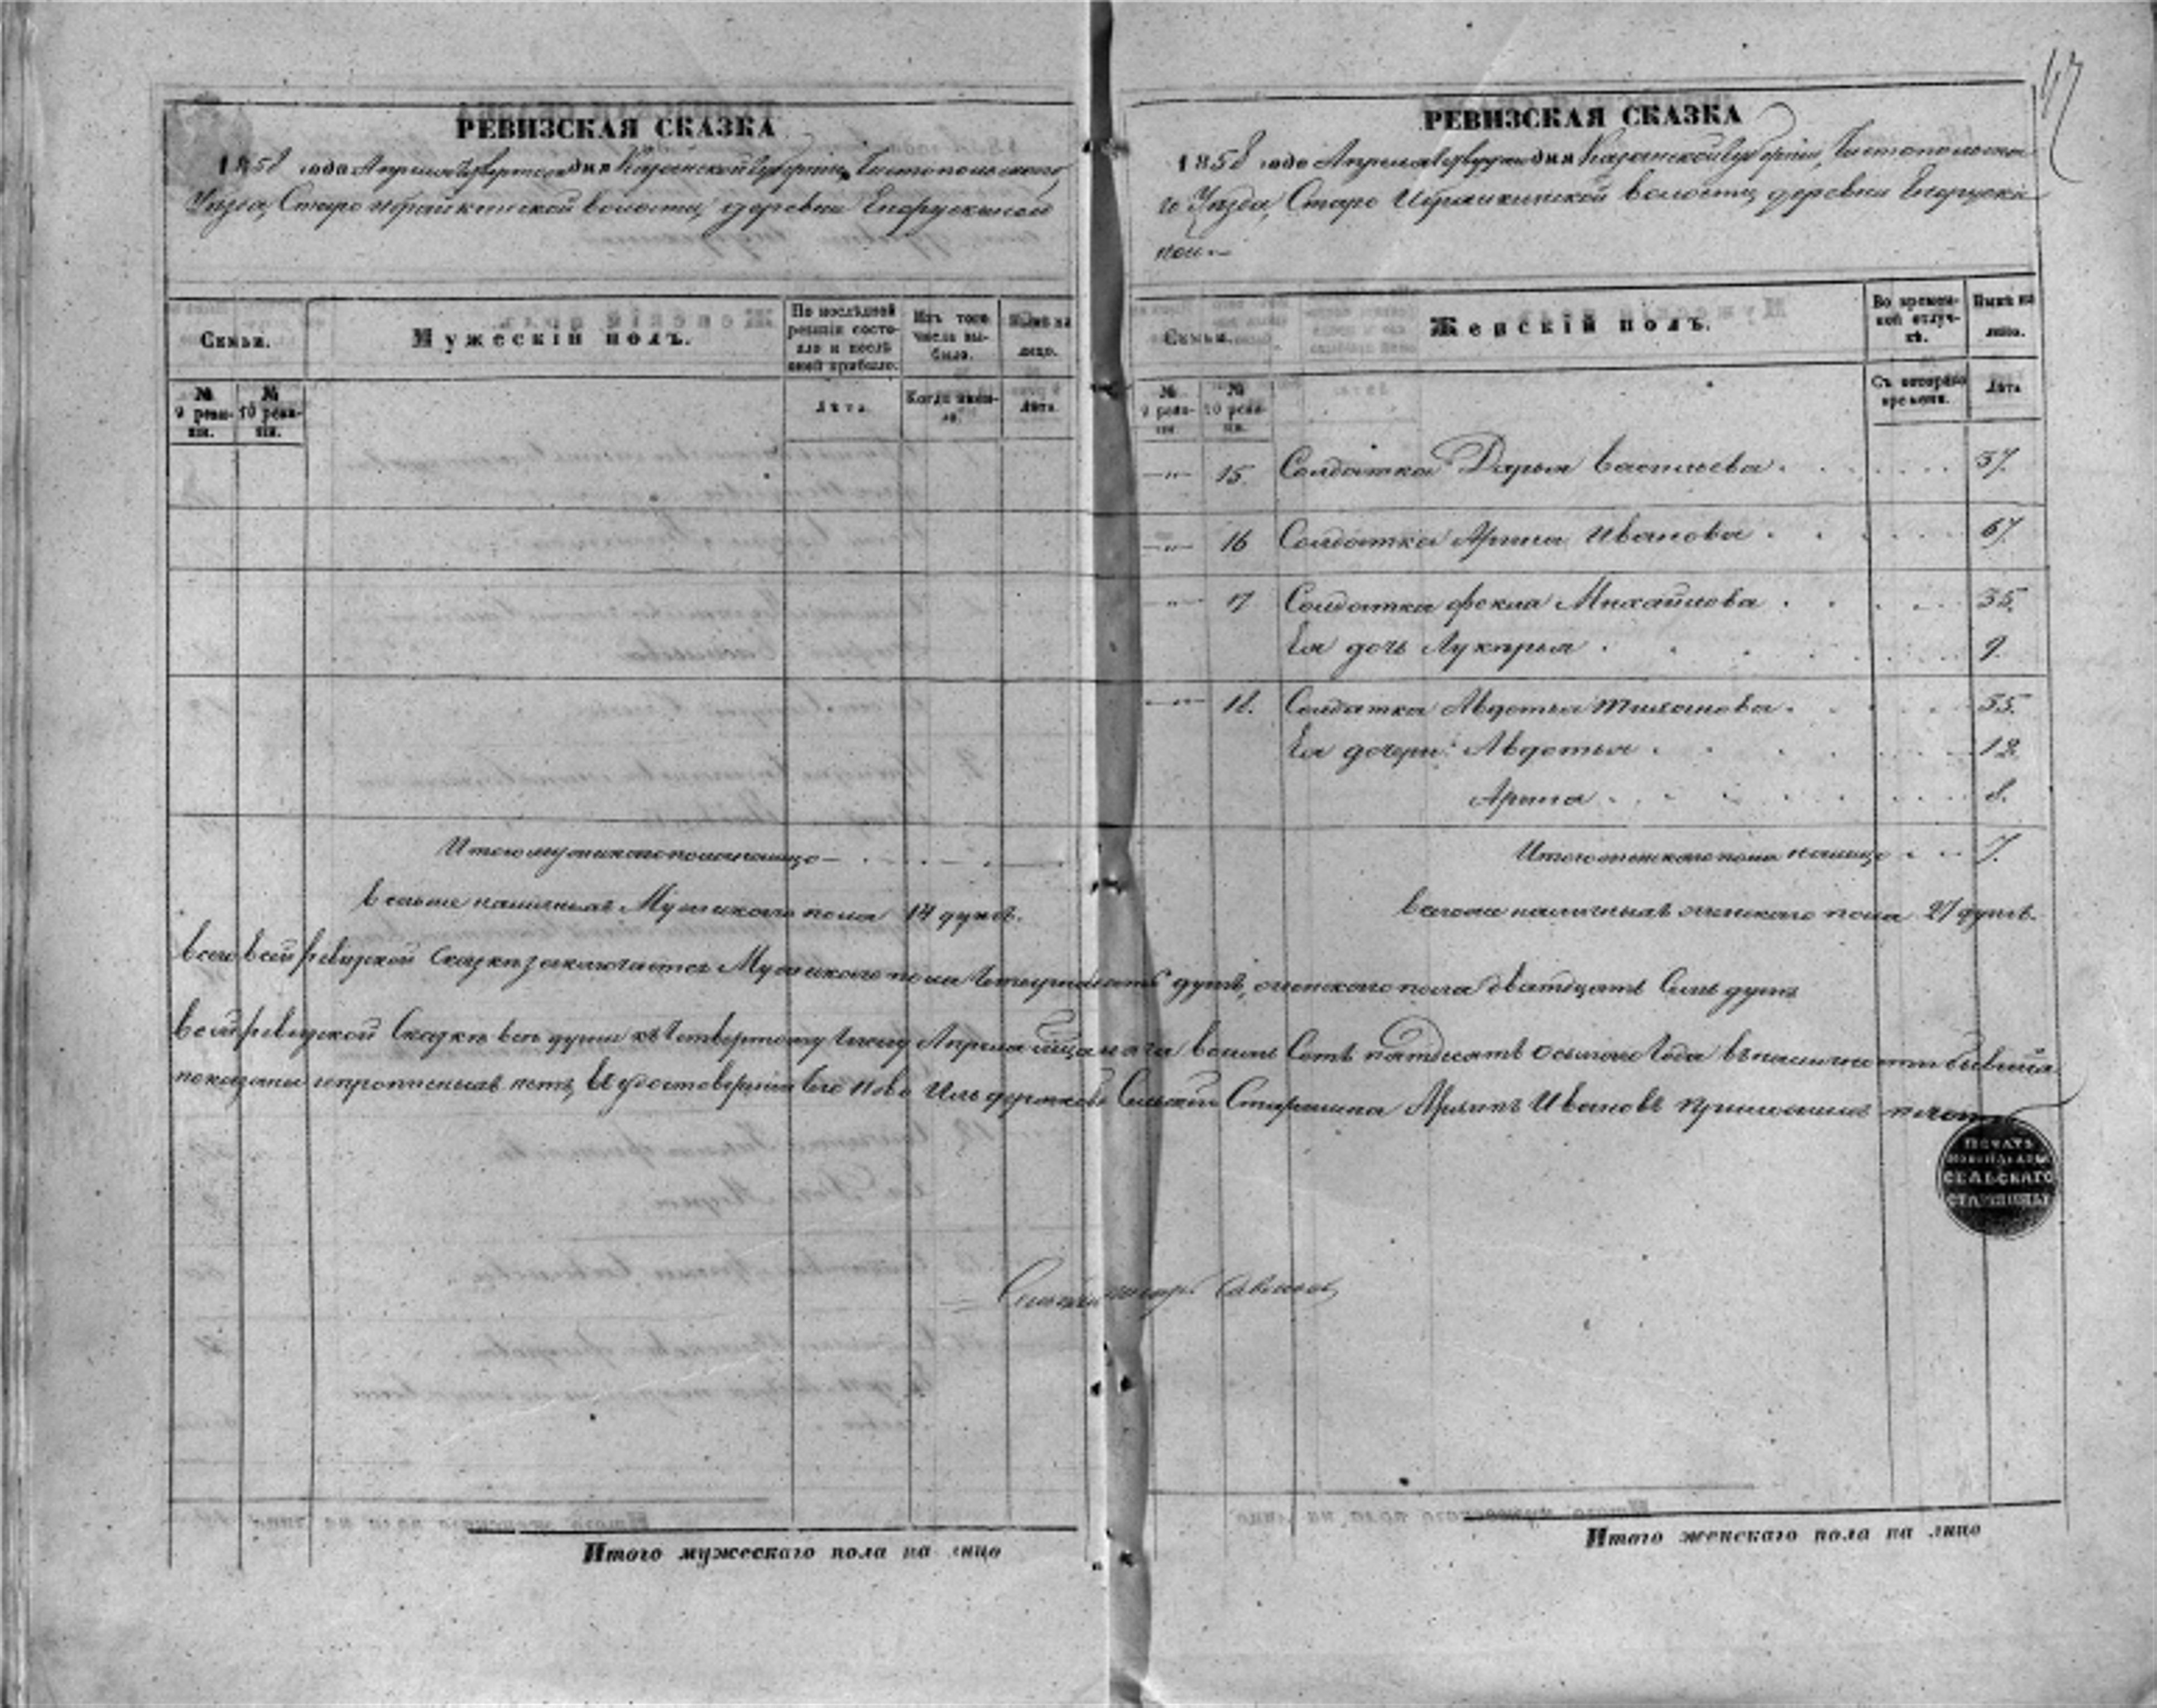 РЕВИЗСКАЯ СКАЗКА
1858 года Апреля четвертого дня Казанской Губернии, Чистопольского
Уѣзда, Старо Ибрайкинской волости, деревни
Семьи.
Мужескій полъ.
По послѣдней ревизіи состояло и послѣ оной прибыло.
Изъ того числа выбыло.
Нынѣ на лицо.
№ 9 ревизіи.
№ 10 ревизіи.
Лѣта.
Когда именно.
Лѣта.
Итого мужескаго пола налицо
Всего же наличныхъ Мужескаго пола 14 душъ.
РЕВИЗСКАЯ СКАЗКА
1858 года Апреля дня Казанской Губерніи, Чистопольска
го Уѣзда, Старо Ибраикинской волости, деревни
ной
Семьи.
Женскій полъ.
Во временной отлучкѣ.
Нынѣ на лицо.
№ 9 ревизіи.
№ 10 ревизіи.
Съ котораго времени.
Лѣта
—"— 15. Солдатка Дарья Васильева 37.
—"— 16 Солдатка Арина Иванова 67.
—"— 17 Солдатка Фекла Михайлова 35.
Ея дочь Лукерья 9.
—"— 18. Солдатка Авдотья 35.
Ея дочери: Авдотья 12
Арина 8.
Итого женскаго пола налицо 7.
Всего же наличныхъ женскаго пола 27 душъ.
Всего в сей ревизской Сказкѣ заключается Мужескаго пола Четырнадцать душъ, женскаго пола двадцать Семь душъ
В сей ревизской Сказкѣ всѣ души къ Четвертому числу Апреля восемь Сотъ пятдесятъ осьмого Года въ наличности бывшія
показаны и прописныхъ нетъ, В удостовереніи сего Ново Сельскій Старшина Иванов приложилъ печать
ПЕЧАТЬ
СЕЛЬСКАГО
СТАРШИНЫ
Сельскій писарь
Итого мужескаго пола на лицо
Итого женскаго пола на лицо